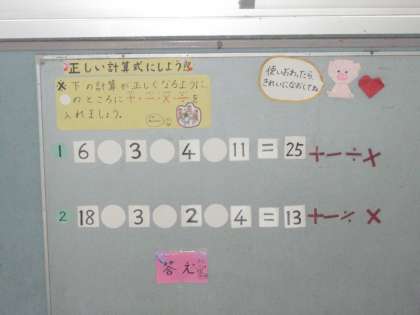 正しい計算式にしよう
※下の計算が正しくなるように
○のところに＋、－、×、÷を
入れましょう。
使いおわったら、
きれいになおしてね
1 6 ○ 3 ○ 4 ○ 11 = 25 + - ÷ ×
2 18 ○ 3 ○ 2 ○ 4 = 13 + - ÷ ×
答え